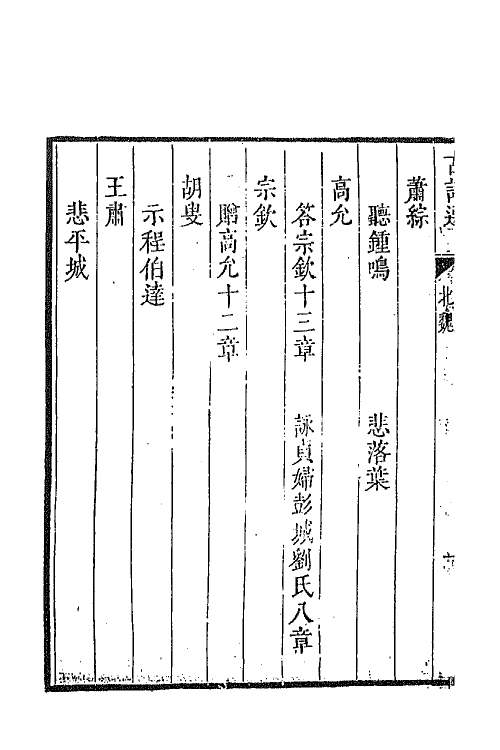 北魏
蕭綜
聽鍾鳴　悲落葉
高允
答宗欽十三章　詠貞婦彭城劉氏八章
宗欽
贈高允十二章
胡叟
示程伯達
王肅
悲平城